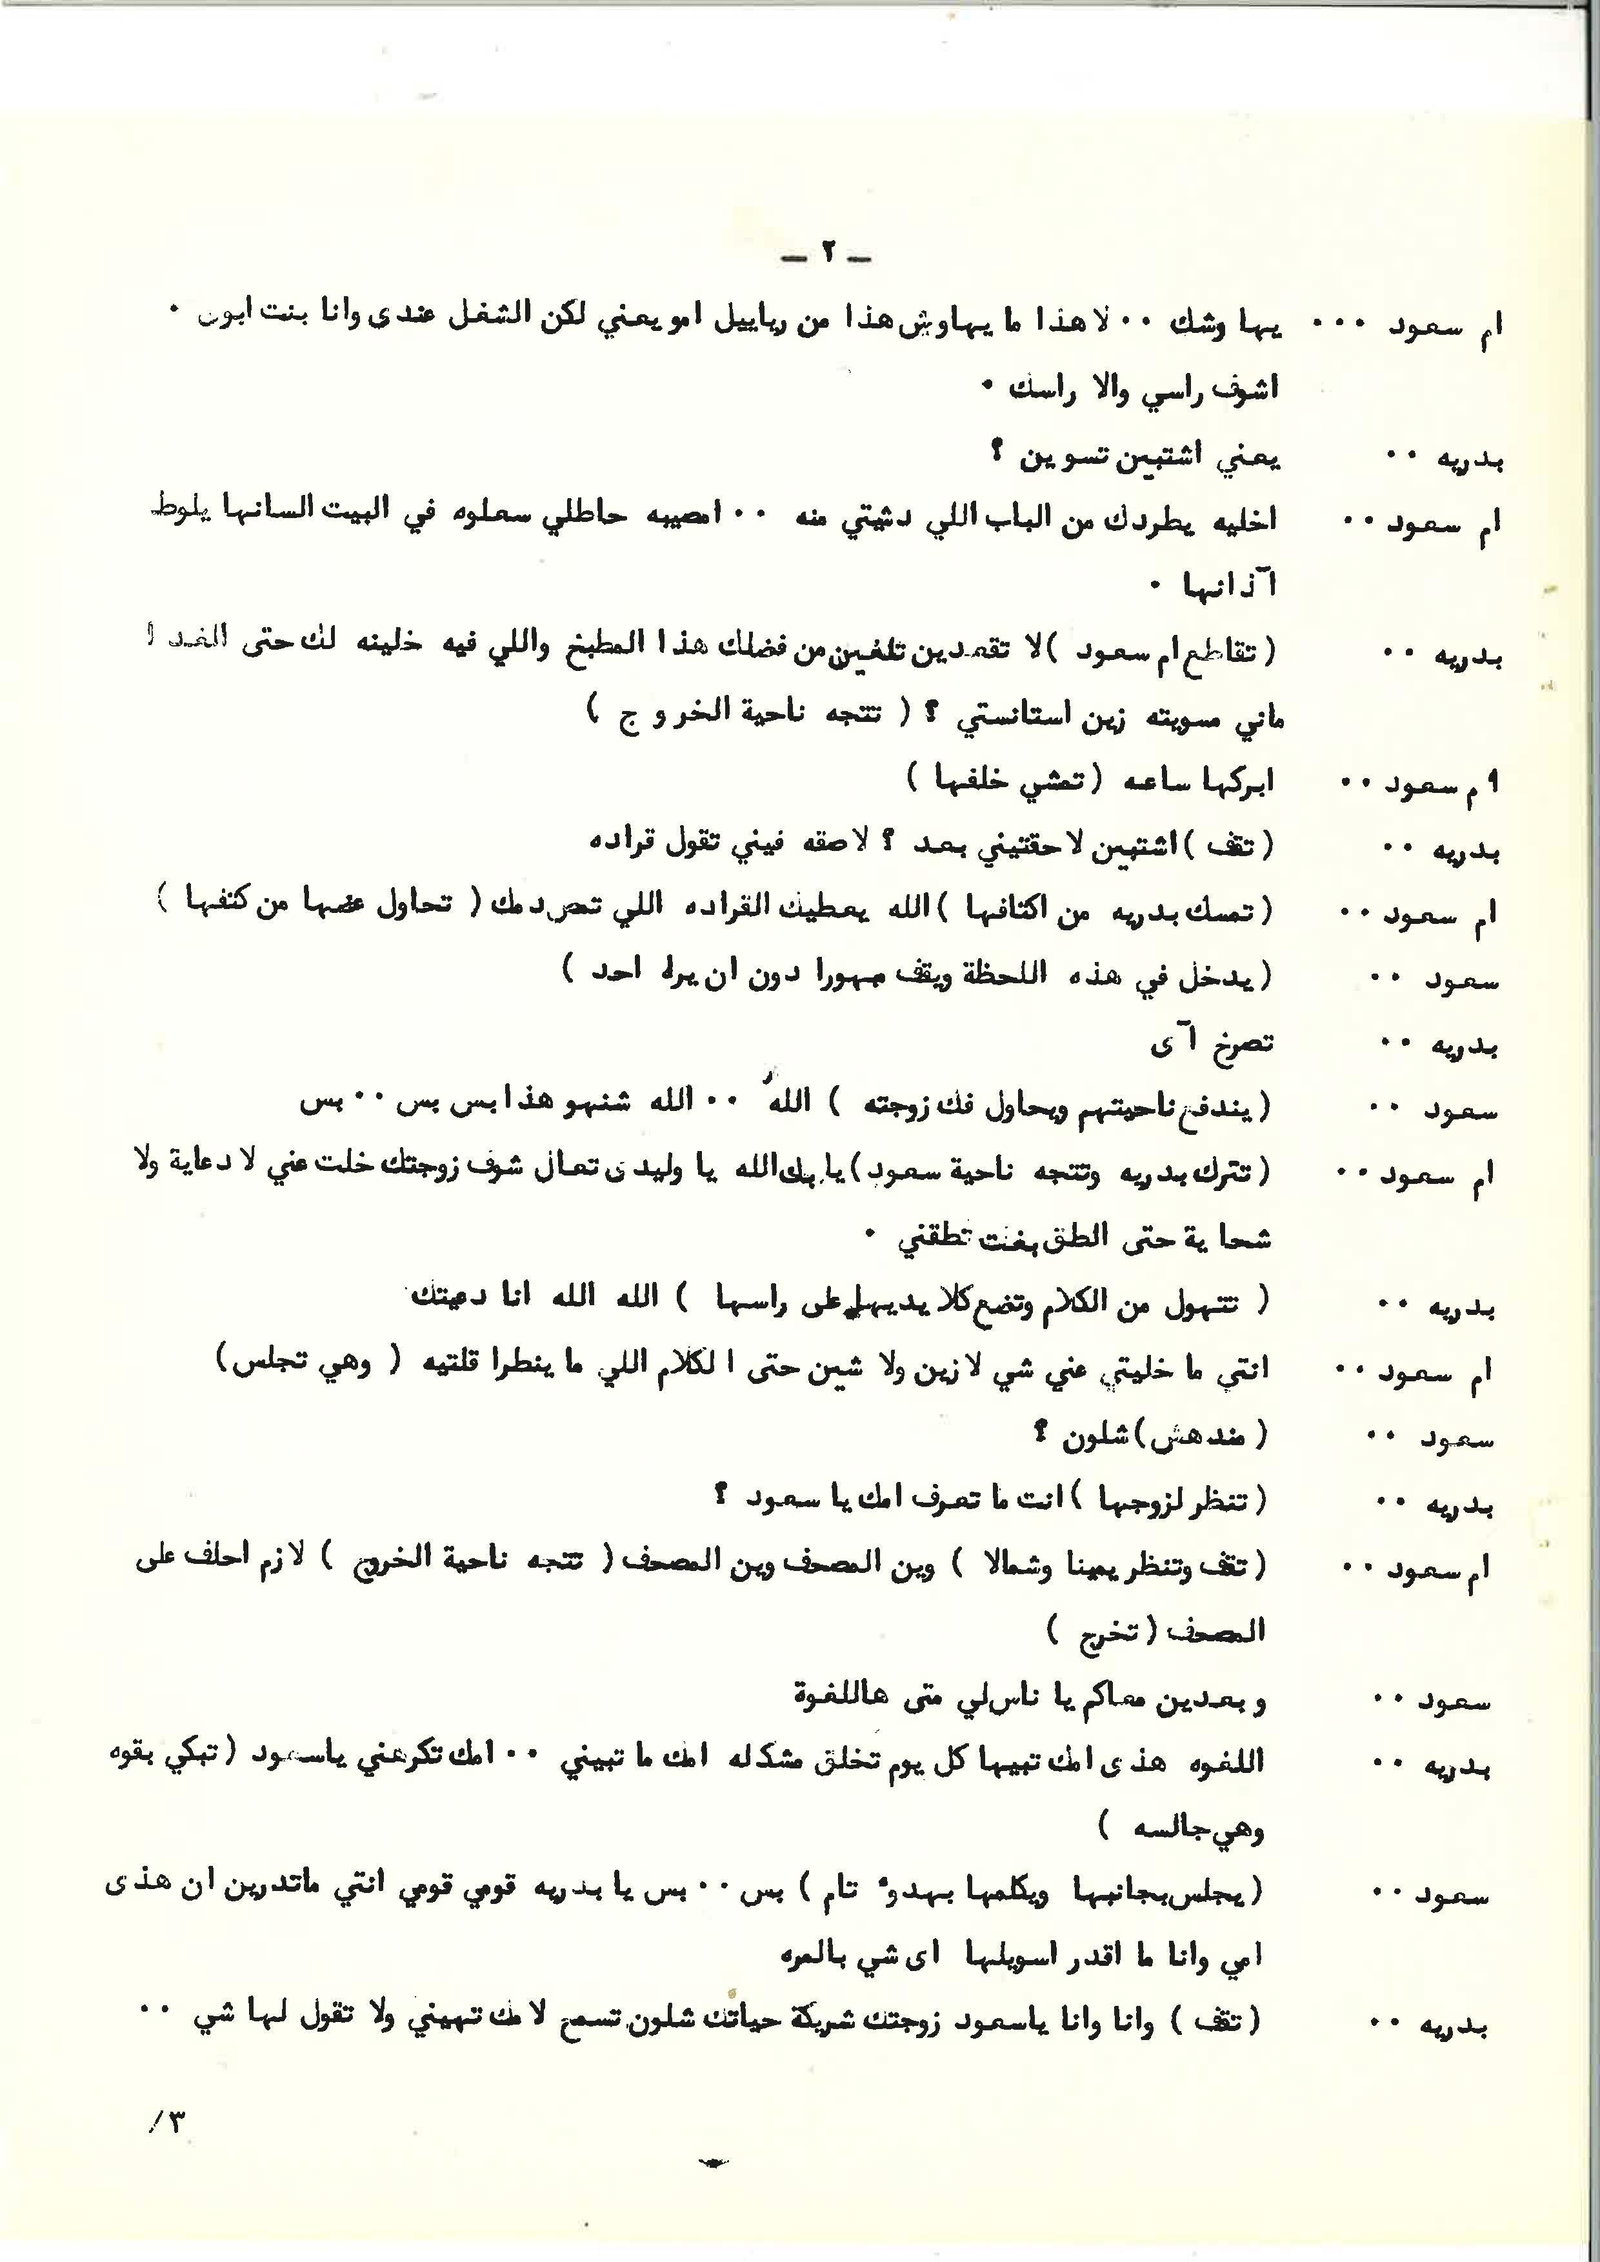 – ٢ –
ام سعود ٠٠٠ يهاوشك ٠٠ لا هذا ما يهاوش هذا من رباييل امو يعني لكن الشغل عندى وانا بنت ابوى ٠
اشوف راسي والا راسك ٠
بدريه ٠٠ يعني اشتبين تسوين ؟
ام سعود ٠٠ اخليه يطردك من الباب اللي دشيتي منه ٠٠ امصيبه حاطلي سعلوه في البيت السانها يلوط
آذانها ٠
بدريه ٠٠ ( تقاطع ام سعود ) لا تقعدين تلغين من فضلك هذا المطبخ واللي فيه خلينه لك حتى الغدا
ماني مسويته زين استانستي ؟ ( تتجه ناحية الخروج )
ام سعود ٠٠ ابركها ساعه ( تمشي خلفها )
بدريه ٠٠ ( تقف ) اشتبين لاحقتيني بعد ؟ لاصقه فيني تقول قراده
ام سعود ٠٠ ( تمسك بدريه من اكتافها ) الله يعطيك القراده اللي تمص دمك ( تحاول عضها من كتفها )
سعود ٠٠ ( يدخل في هذه اللحظة ويقف مبهورا دون ان يراه احد )
بدريه ٠٠ تصرخ آى
سعود ٠٠ ( يندفع ناحيتهم ويحاول فك زوجته ) الله ٠٠ الله شنهو هذا بس بس ٠٠ بس
ام سعود ٠٠ ( تترك بدريه وتتجه ناحية سعود ) يابك الله يا وليدى تعال شوف زوجتك خلت عني لا دعاية ولا
شحاية حتى الطق بغت تطقني ٠
بدريه ٠٠ ( تتهول من الكلام وتضع كلا يديها على راسها ) الله الله انا دعيتك
ام سعود ٠٠ انتي ما خليتي عني شي لا زين ولا شين حتى الكلام اللي ما ينطرا قلتيه ( وهي تجلس )
سعود ٠٠ ( مندهش ) شلون ؟
بدريه ٠٠ ( تنظر لزوجها ) انت ما تعرف امك يا سعود ؟
ام سعود ٠٠ ( تقف وتنظر يمينا وشمالا ) وين المصحف وين المصحف ( تتجه ناحية الخروج ) لازم احلف على
المصحف ( تخرج )
سعود ٠٠ وبعدين معاكم يا ناس لي متى هاللغوة
بدريه ٠٠ اللغوه هذى امك تبيها كل يوم تخلق مشكله امك ما تبيني ٠٠ امك تكرهني ياسعود ( تبكي بقوه
وهي جالسه )
سعود ٠٠ ( يجلس بجانبها ويكلمها بهدوء تام ) بس ٠٠ بس يا بدريه قومي قومي انتي ماتدرين ان هذى
امي وانا ما اقدر اسويلها اى شي بالمره
بدريه ٠٠ ( تقف ) وانا وانا ياسعود زوجتك شريكة حياتك شلون تسمح لامك تهيني ولا تقول لها شي ٠٠
٣/